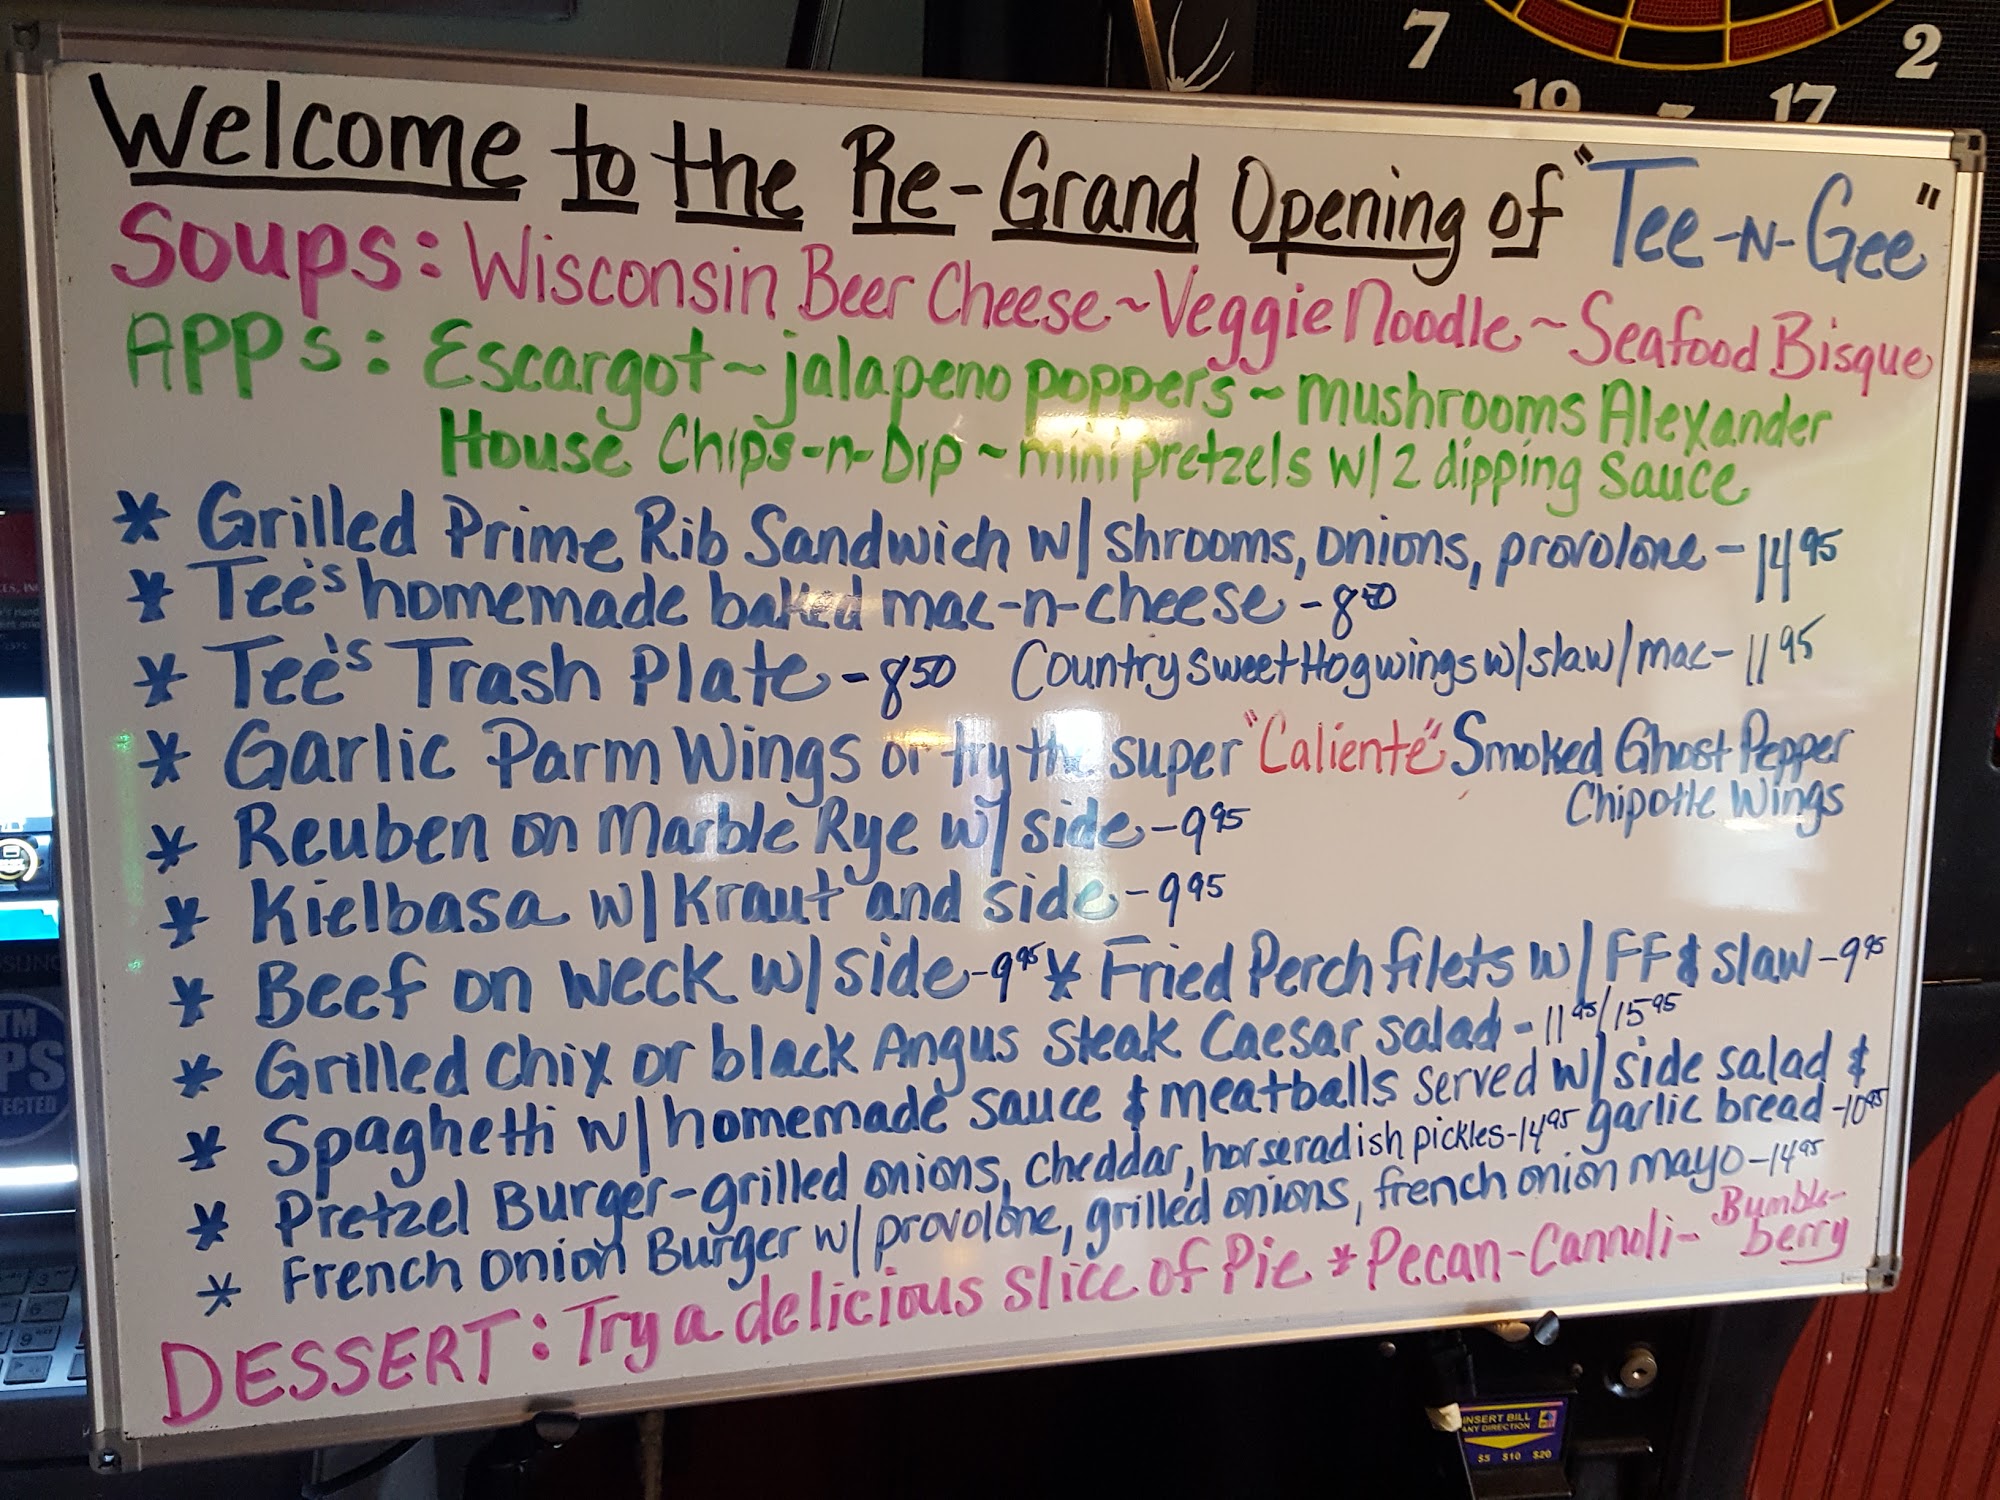 Welcome to the Re-Grand Opening of "Tee-N-Gee"
Soups: Wisconsin Beer Cheese ~ Veggie Noodle ~ Seafood Bisque
APPs: Escargot ~ jalapeno poppers ~ mushrooms Alexander
House Chips-n-Dip ~ mini pretzels w/ 2 dipping sauce
* Grilled Prime Rib Sandwich w/ shrooms, onions, provolone - 14 95
* Tee's homemade baked mac-n-cheese - 8 50
* Tee's Trash Plate - 8 50 Country sweet Hogwings w/slaw/mac - 11 95
* Garlic Parm Wings or try the super "Caliente" Smoked Ghost Pepper
Chipotle Wings
* Reuben on Marble Rye w/ side - 9 95
* Kielbasa w/ Kraut and side - 9 95
* Beef on weck w/ side - 9 95 * Fried Perch filets w/ FF & slaw - 9 95
* Grilled chix or black Angus steak Caesar salad - 11 95/15 95
* Spaghetti w/ homemade sauce & meatballs served w/ side salad &
garlic bread - 10 95
* Pretzel Burger - grilled onions, cheddar, horseradish pickles - 14 95
* French onion Burger w/ provolone, grilled onions, french onion mayo - 14 95
DESSERT: Try a delicious slice of Pie * Pecan - Cannoli - Bumble-
berry
7
19
17
2
INSERT BILL
ANY DIRECTION
$5 $10 $20